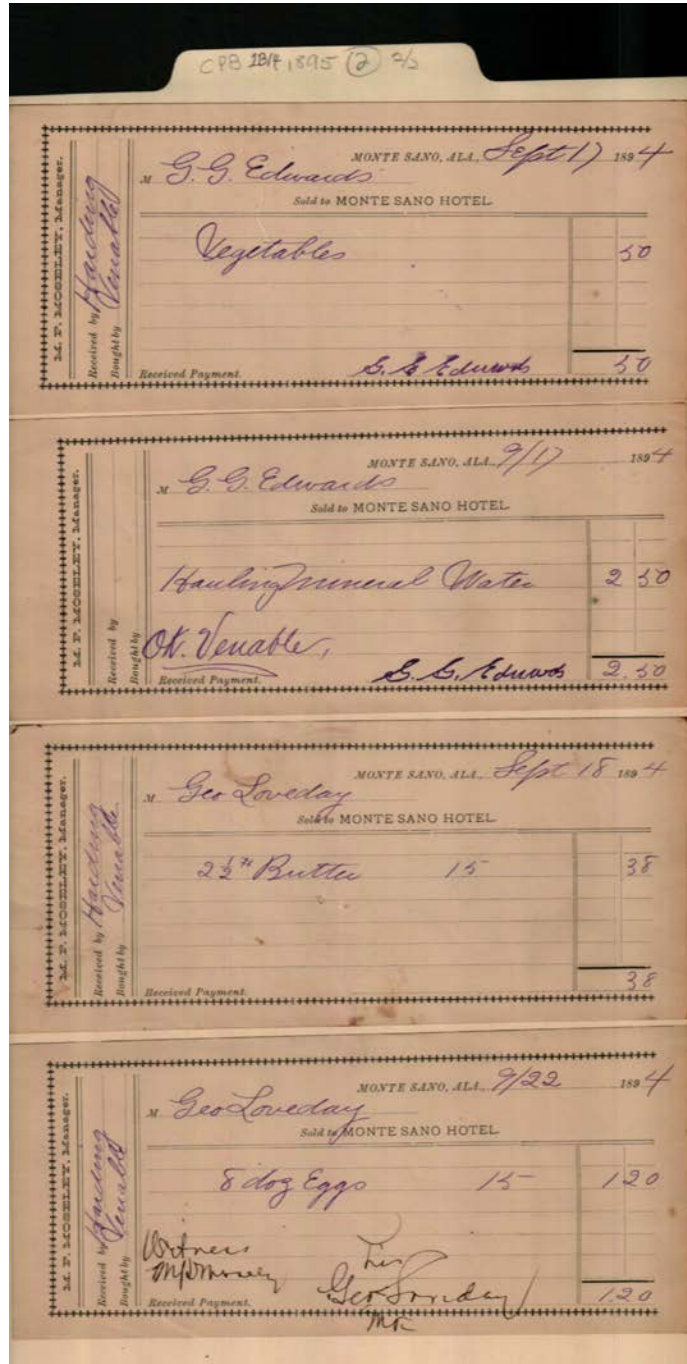 CPB 1894 1895 (2) 2/2
M. P. MOSELEY, Manager.
Received by Harding
Bought by Venable
MONTE SANO, ALA., Sept 17 1894
M G. G. Edwards
Sold to MONTE SANO HOTEL.
Vegetables 50
Received Payment. G. G. Edwards 50
M. P. MOSELEY, Manager.
Received by
Bought by
MONTE SANO, ALA., 9/17 1894
M G. G. Edwards
Sold to MONTE SANO HOTEL.
Hauling mineral Water 2 50
OK. Venable,
Received Payment. G. G. Edwards 2.50
M. P. MOSELEY, Manager.
Received by Harding
Bought by Venable
MONTE SANO, ALA., Sept 18 1894
M Geo Loveday
Sold to MONTE SANO HOTEL.
2 1/2 # Butter 15 38
Received Payment. 38
M. P. MOSELEY, Manager.
Received by Harding
Bought by Venable
MONTE SANO, ALA., 9/22 1894
M Geo Loveday
Sold to MONTE SANO HOTEL.
8 doz Eggs 15 1 20
Witness his
MPMosely Geo Loveday
Received Payment. 1 20